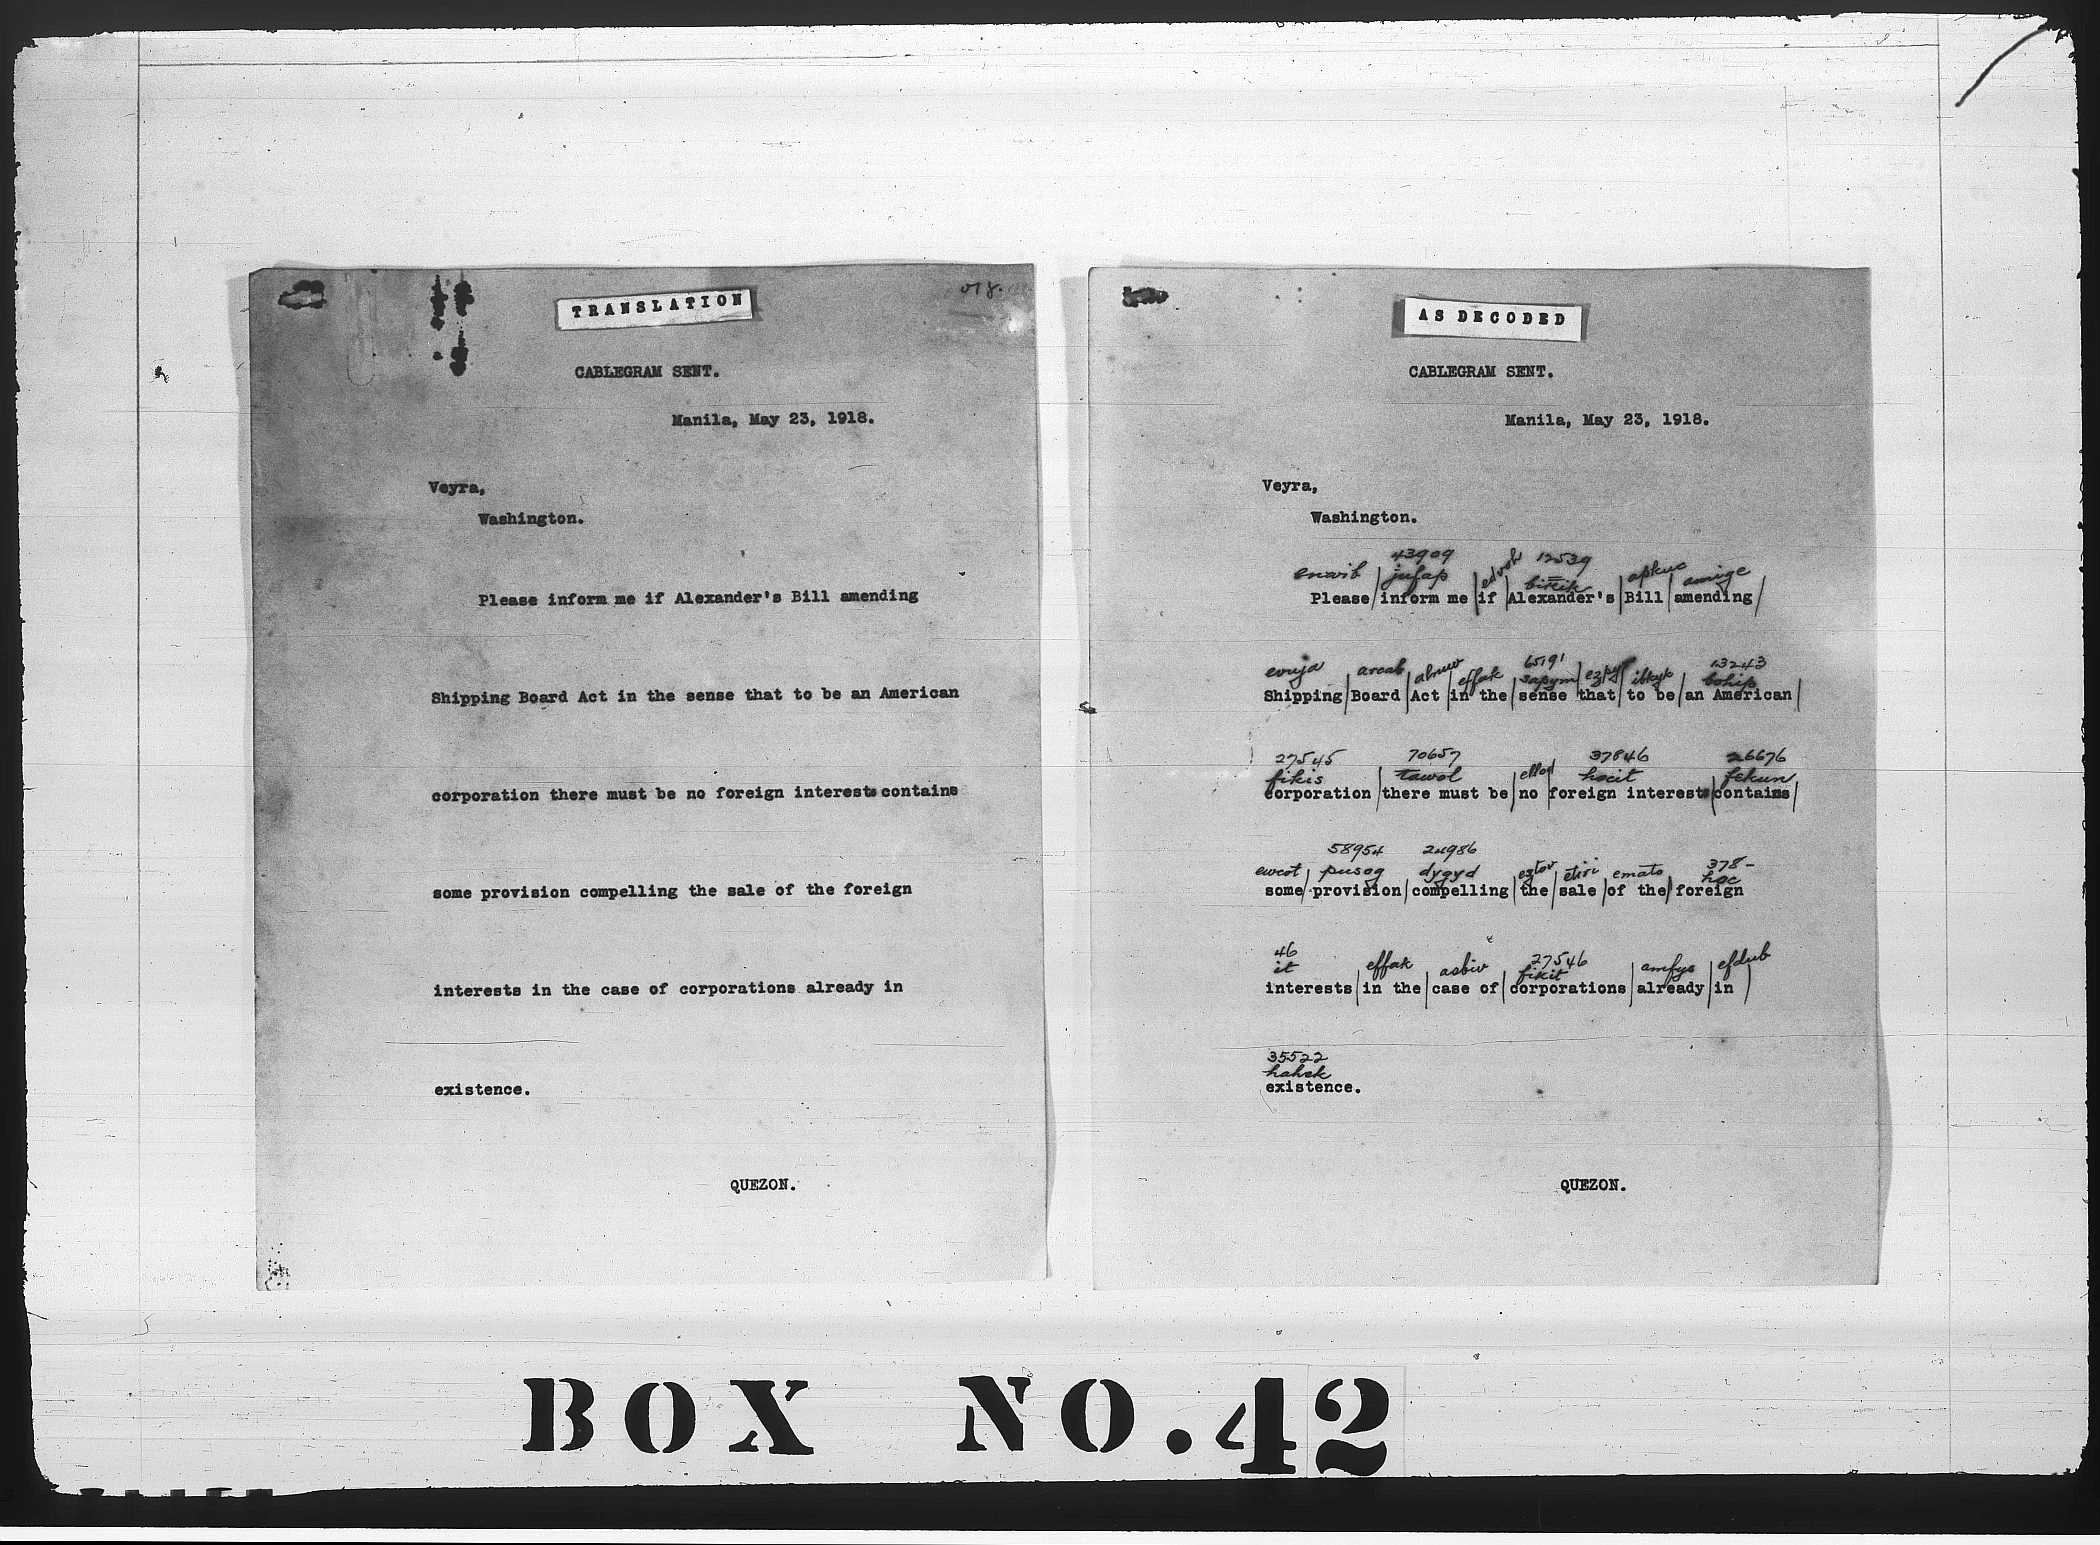 TRANSLATION
CABLEGRAM SENT.
Manila, May 23, 1918.
Veyra,
Washington.
Please inform me if Alexander's Bill amending
Shipping Board Act in the sense that to be an American
corporation there must be no foreign interests contains
some provision compelling the sale of the foreign
interests in the case of corporations already in
existence.
QUEZON.
AS DECODED
CABLEGRAM SENT.
Manila, May 23, 1918.
Veyra,
Washington.
43909 12539
jufap
Please/inform me/if/Alexander's/Bill/amending/
65191 13243
effak sapym bohip
Shipping/Board/Act/in the/sense/that/to be/an American/
27545 70657 37846 26676
fikis tawol hocit fekun
corporation/there must be/no/foreign interests/contains/
58954 24986 378-
pusog dygyd emato hoc
some/provision/compelling/the/sale/of the/foreign
46 27546
it effak asbiv fikit amfys efdub
interests/in the/case of/corporations/already/in/
35522
hahek
existence.
QUEZON.
BOX NO. 42